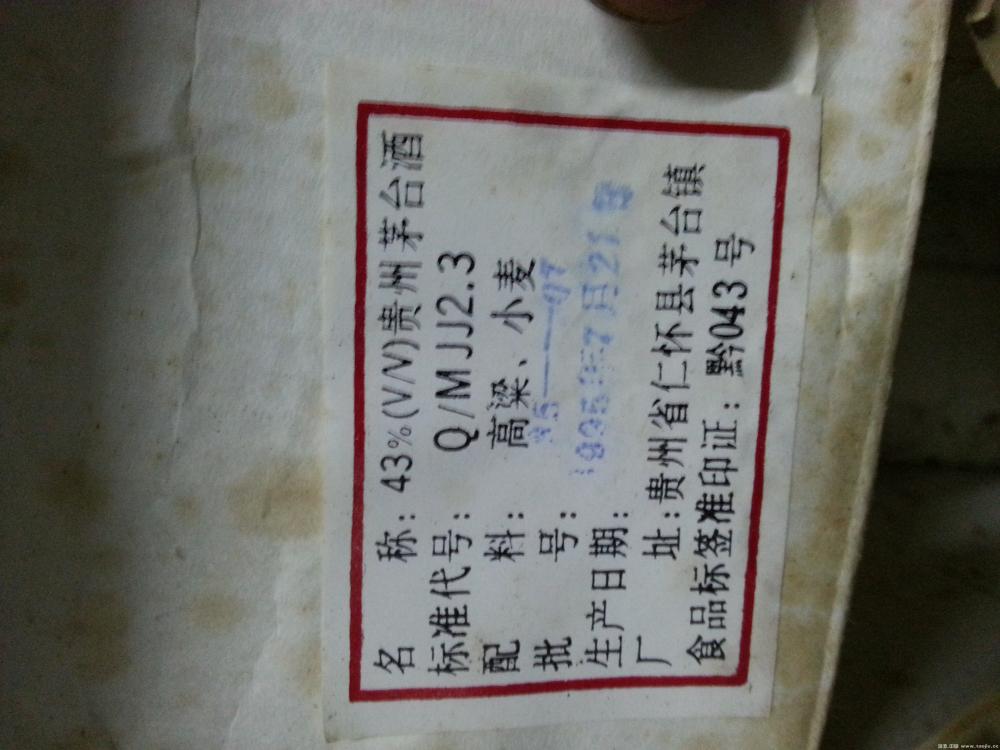 名 称：43%(V/V)贵州茅台酒
标准代号：Q/MJJ2.3
配 料：高粱、小麦
批 号：95——07
生产日期：1995年7月21日
厂 址：贵州省仁怀县茅台镇
食品标签准印证：黔043号